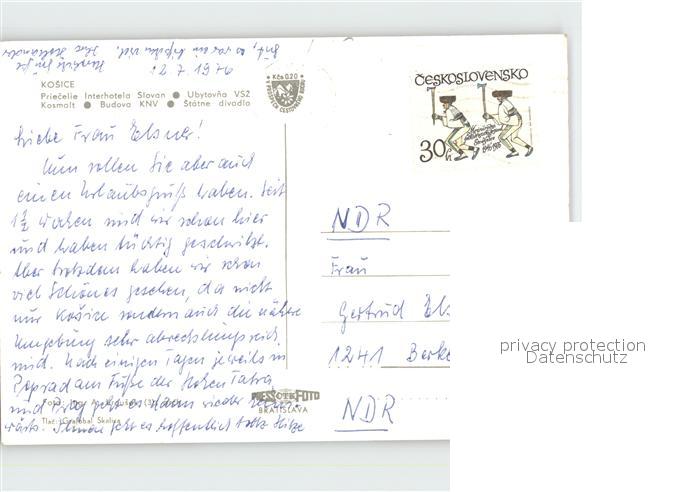 Gut, so
12.7.1976
Herzliche Grüße Ihre
KOŠICE
Priečelie Interhotela Slovan ● Ubytovňa VSŽ
Kosmalt ● Budova KNV ● Štátne divadlo
Kčs 0,20
ČESKOSLOVENSKO
30 h
Liebe Frau Elsner!
Nun sollen Sie aber auch
einen Urlaubsgruß haben. Seit
1½ Wochen sind wir schon hier
und haben tüchtig geschwitzt.
Aber trotzdem haben wir schon
viel Schönes gesehen, da nicht
nur Košice sondern auch die nähere
Umgebung sehr abwechslungsreich
sind. Nach einigen Tagen jeweils in
Poprad am Fuße der Hohen Tatra
und Prag geht es dann wieder
wärts. Ihnen geht es hoffentlich trotz Hitze
Foto:
Tlač: Grafobal Skalica
PRESSFOTO
BRATISLAVA
NDR
Frau
Gertrud Els
1241 Berke
NDR
privacy protection
Datenschutz